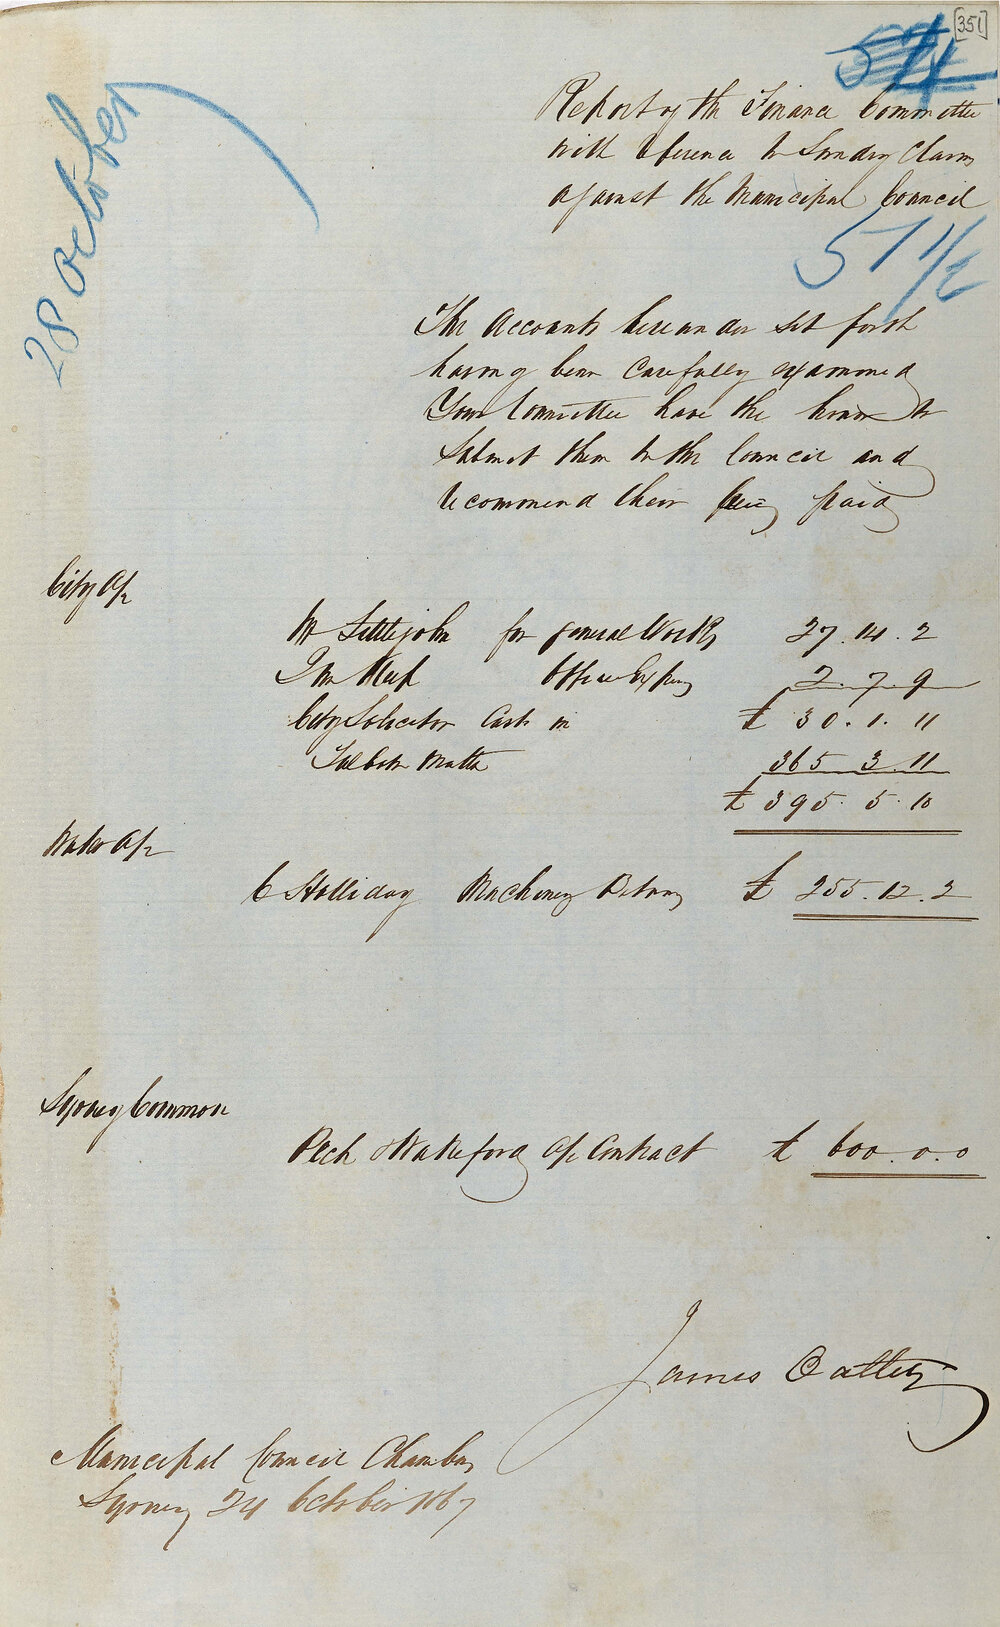 [351]
28 October
Report of the Finance Committee
with reference to Sundry Claims
against the Municipal Council
57 1/2
The Accounts hereunder set forth
having been Carefully examined
Your Committee have the honor to
Submit them to the Council and
recommend their being paid
City A/c
W Littlejohn for general Works 27.14.2
Office Expens 2.7.9
City Solicitor Costs in £ 30.1.11
Talbots Matter 365.3.11
£ 395.5.10
Water A/c
C Halliday Machinery Botany £ 255.12.2
Sydney Common
Pech & Wakeford A/c Contract £ 600.0.0
James Oatley
Municipal Council Chambers
Sydney 24 October 1867